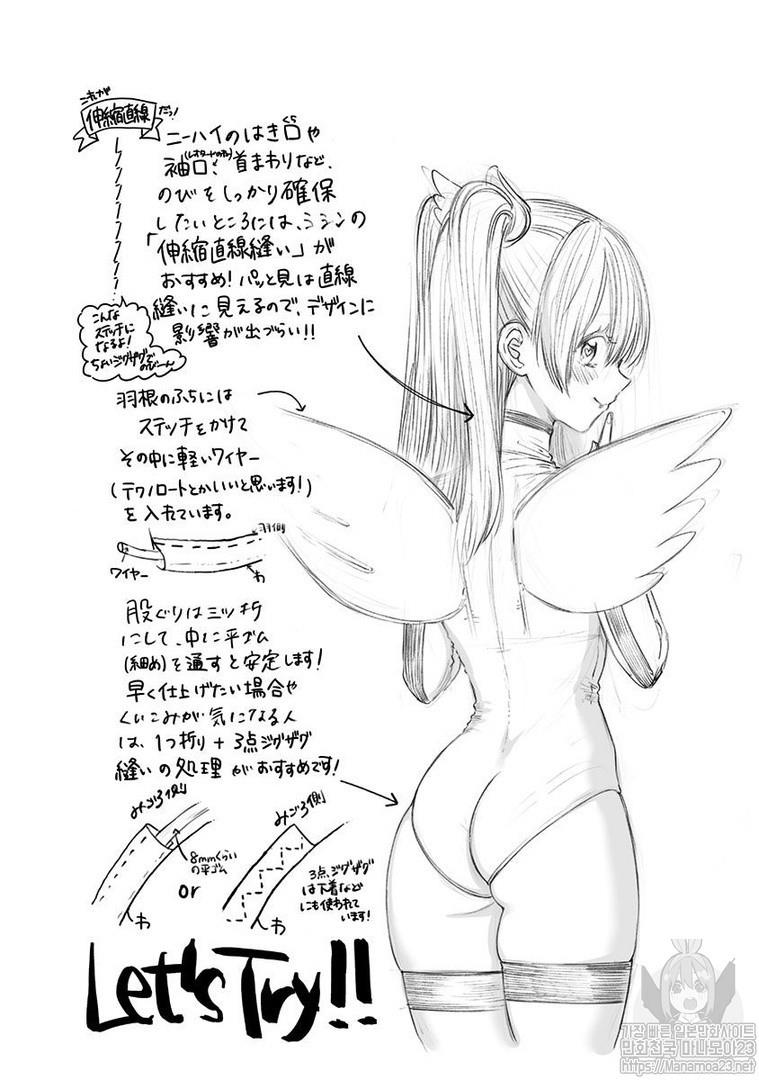 これが
伸縮直線
だっ!
こんな
ステッチに
なるよ!
ちょいジグザグで
のびーん
ニーハイのはき口や
袖口、首まわりなど、
のびをしっかり確保
したいところには、ミシンの
「伸縮直線縫い」が
おすすめ!パッと見は直線
縫いに見えるので、デザインに
影響が出づらい!!
羽根のふちには
ステッチをかけて
その中に軽いワイヤー
(テクノロートとかいいと思います!)
を入れています。
羽側
ワイヤー
わ
股ぐりは三ツ折
にして、中に平ゴム
(細め)を通すと安定します!
早く仕上げたい場合や
くいこみが気になる人
は、1つ折り+3点ジグザグ
縫いの処理がおすすめです!
みごろ側
8mmくらい
の平ゴム
わ
or
みごろ側
3点ジグザグ
は下着など
にも使われて
います!
わ
Let's Try!!
가장 빠른 일본만화사이트
만화천국 마나모아23
https://Manamoa23.net